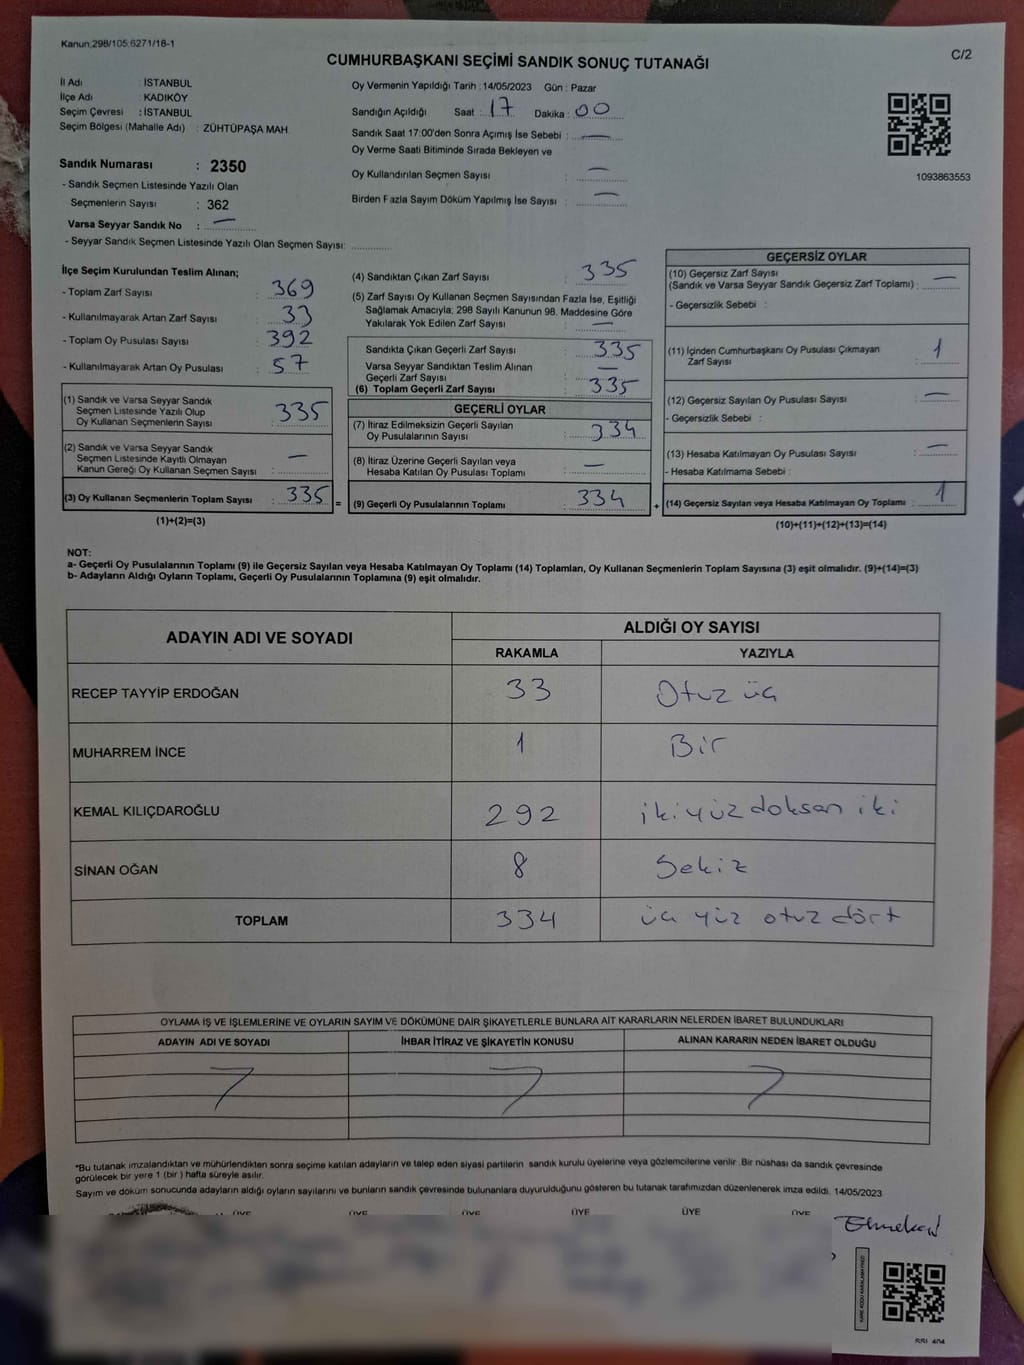 Kanun;298/105;6271/18-1
C/2
CUMHURBAŞKANI SEÇİMİ SANDIK SONUÇ TUTANAĞI
İl Adı : İSTANBUL
İlçe Adı : KADIKÖY
Seçim Çevresi : İSTANBUL
Seçim Bölgesi (Mahalle Adı) : ZÜHTÜPAŞA MAH.
Sandık Numarası : 2350
- Sandık Seçmen Listesinde Yazılı Olan
Seçmenlerin Sayısı : 362
Varsa Seyyar Sandık No : —
- Seyyar Sandık Seçmen Listesinde Yazılı Olan Seçmen Sayısı:
Oy Vermenin Yapıldığı Tarih : 14/05/2023 Gün : Pazar
Sandığın Açıldığı Saat : 17 Dakika : 00
Sandık Saat 17:00'den Sonra Açımış İse Sebebi : —
Oy Verme Saati Bitiminde Sırada Bekleyen ve
Oy Kullandırılan Seçmen Sayısı : —
Birden Fazla Sayım Döküm Yapılmış İse Sayısı : —
1093863553
İlçe Seçim Kurulundan Teslim Alınan;
- Toplam Zarf Sayısı : 369
- Kullanılmayarak Artan Zarf Sayısı : 33
- Toplam Oy Pusulası Sayısı : 392
- Kullanılmayarak Artan Oy Pusulası : 57
(1) Sandık ve Varsa Seyyar Sandık
Seçmen Listesinde Yazılı Olup
Oy Kullanan Seçmenlerin Sayısı : 335
(2) Sandık ve Varsa Seyyar Sandık
Seçmen Listesinde Kayıtlı Olmayan
Kanun Gereği Oy Kullanan Seçmen Sayısı : —
(3) Oy Kullanan Seçmenlerin Toplam Sayısı : 335 =
(1)+(2)=(3)
(4) Sandıktan Çıkan Zarf Sayısı : 335
(5) Zarf Sayısı Oy Kullanan Seçmen Sayısından Fazla İse, Eşitliği
Sağlamak Amacıyla, 298 Sayılı Kanunun 98. Maddesine Göre
Yakılarak Yok Edilen Zarf Sayısı : —
Sandıkta Çıkan Geçerli Zarf Sayısı : 335
Varsa Seyyar Sandıktan Teslim Alınan
Geçerli Zarf Sayısı : —
(6) Toplam Geçerli Zarf Sayısı : 335
GEÇERLİ OYLAR
(7) İtiraz Edilmeksizin Geçerli Sayılan
Oy Pusulalarının Sayısı : 334
(8) İtiraz Üzerine Geçerli Sayılan veya
Hesaba Katılan Oy Pusulası Toplamı : —
(9) Geçerli Oy Pusulalarının Toplamı : 334 +
GEÇERSİZ OYLAR
(10) Geçersiz Zarf Sayısı
(Sandık ve Varsa Seyyar Sandık Geçersiz Zarf Toplamı) : —
- Geçersizlik Sebebi :
(11) İçinden Cumhurbaşkanı Oy Pusulası Çıkmayan
Zarf Sayısı : 1
(12) Geçersiz Sayılan Oy Pusulası Sayısı : —
- Geçersizlik Sebebi :
(13) Hesaba Katılmayan Oy Pusulası Sayısı : —
- Hesaba Katılmama Sebebi :
(14) Geçersiz Sayılan veya Hesaba Katılmayan Oy Toplamı : 1
(10)+(11)+(12)+(13)=(14)
NOT:
a- Geçerli Oy Pusulalarının Toplamı (9) ile Geçersiz Sayılan veya Hesaba Katılmayan Oy Toplamı (14) Toplamları, Oy Kullanan Seçmenlerin Toplam Sayısına (3) eşit olmalıdır. (9)+(14)=(3)
b- Adayların Aldığı Oyların Toplamı, Geçerli Oy Pusulalarının Toplamına (9) eşit olmalıdır.
ADAYIN ADI VE SOYADI ALDIĞI OY SAYISI
RAKAMLA YAZIYLA
RECEP TAYYİP ERDOĞAN 33 Otuz üç
MUHARREM İNCE 1 Bir
KEMAL KILIÇDAROĞLU 292 iki yüz doksan iki
SİNAN OĞAN 8 Sekiz
TOPLAM 334 üç yüz otuz dört
OYLAMA İŞ VE İŞLEMLERİNE VE OYLARIN SAYIM VE DÖKÜMÜNE DAİR ŞİKAYETLERLE BUNLARA AİT KARARLARIN NELERDEN İBARET BULUNDUKLARI
ADAYIN ADI VE SOYADI İHBAR İTİRAZ VE ŞİKAYETİN KONUSU ALINAN KARARIN NEDEN İBARET OLDUĞU
*Bu tutanak imzalandıktan ve mühürlendikten sonra seçime katılan adayların ve talep eden siyasi partilerin sandık kurulu üyelerine veya gözlemcilerine verilir. Bir nüshası da sandık çevresinde
görülecek bir yere 1 (bir) hafta süreyle asılır.
Sayım ve döküm sonucunda adayların aldığı oyların sayılarını ve bunların sandık çevresinde bulunanlara duyurulduğunu gösteren bu tutanak tarafımızdan düzenlenerek imza edildi. 14/05/2023
ÜYE ÜYE ÜYE ÜYE ÜYE ÜYE